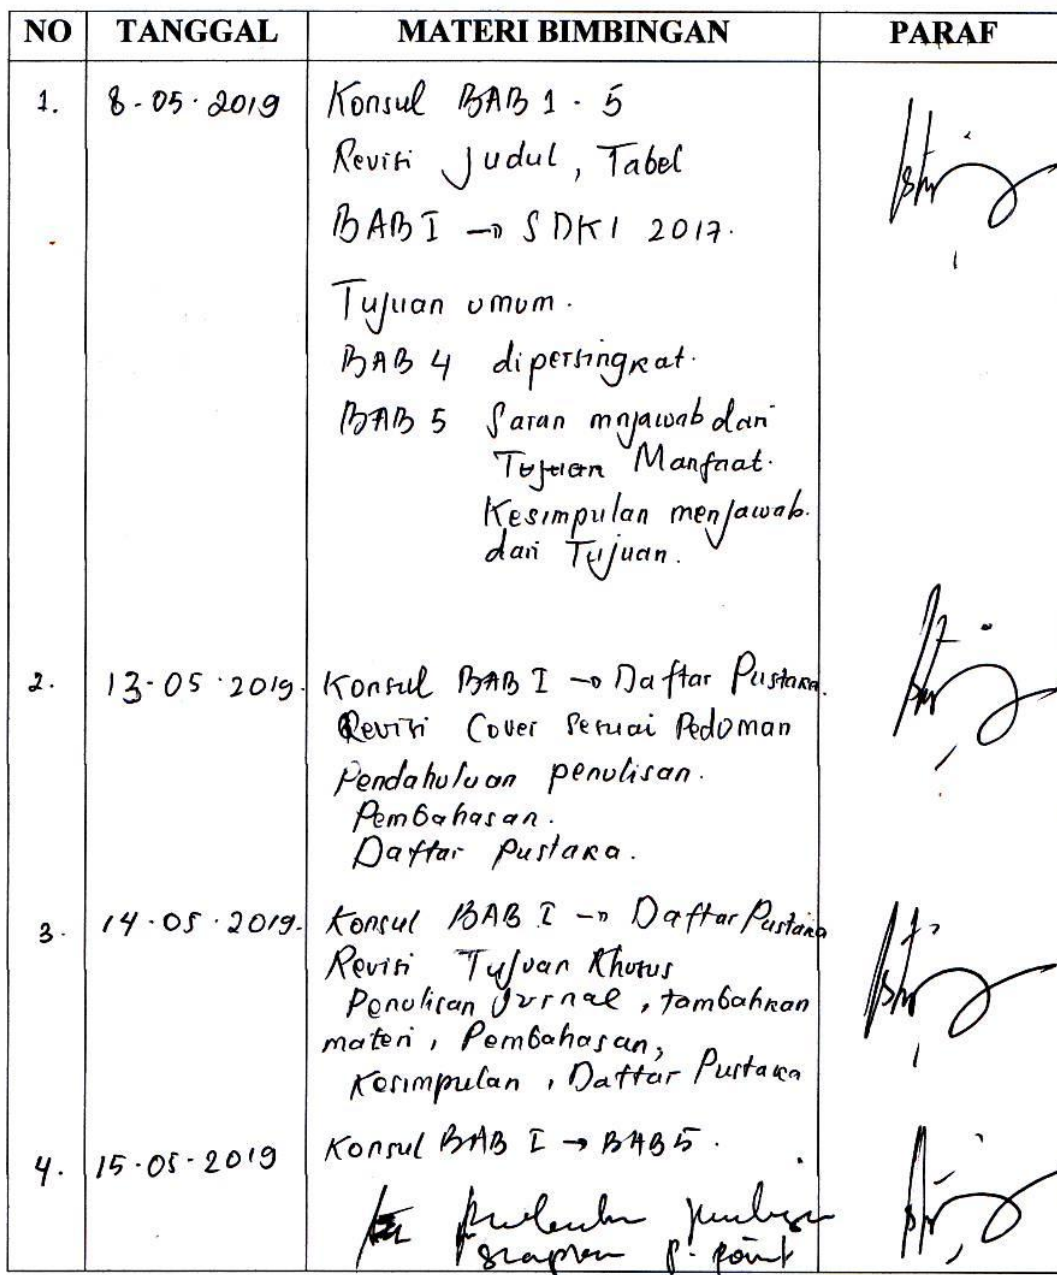 NO TANGGAL MATERI BIMBINGAN PARAF
1. 8-05-2019 Konsul BAB 1 - 5
Revisi Judul, Tabel
BAB I → SDKI 2017.
Tujuan umum.
BAB 4 dipersingkat.
BAB 5 Saran mnjawab dari
Tujuan Manfaat.
Kesimpulan menjawab.
dari Tujuan.
2. 13-05-2019. Konsul BAB I → Daftar Pustaka.
Revisi Cover sesuai Pedoman
Pendahuluan penulisan.
Pembahasan.
Daftar pustaka.
3. 14-05-2019. Konsul BAB I → Daftar Pustaka
Revisi Tujuan Khusus
Penulisan Jurnal, tambahkan
materi, Pembahasan,
Kesimpulan, Daftar Pustaka
4. 15-05-2019 Konsul BAB I → BAB 5.
p. point